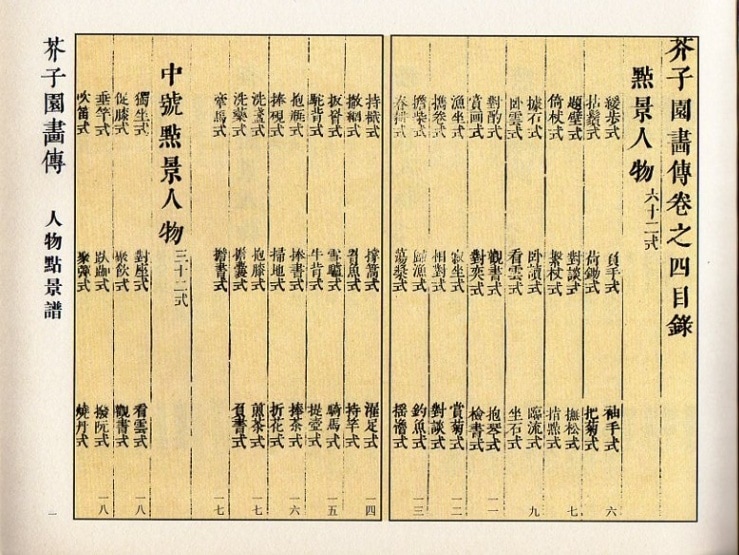 芥子園畫傳卷之四目錄
點景人物 六十二式
緩步式 負手式 袖手式 六
拈鬚式 荷鋤式 把菊式
題壁式 對談式 撫松式 七
倚杖式
據石式 卧讀式 臨流式 九
卧雲式 看雲式 坐石式
對酌式 觀書式 抱琴式 一一
賞画式 對奕式 檢書式
漁坐式 寂坐式 賞菊式 一二
擕卷式 相對式 對談式
擔柴式 歸漁式 釣魚式 一三
蕩槳式 摇櫓式
撐篙式 濯足式 一四
撒網式 罾魚式 持竿式
扳罾式 雪驢式 騎馬式 一五
駝背式 牛背式 提壺式
抱瓶式 捧書式 捧茶式 一六
捧硯式 掃地式 折花式
洗盞式 抱膝式 煎茶式 一七
洗藥式 擔囊式 負書式
牽馬式 擔書式 一七
中號點景人物 三十二式
獨坐式 對座式 看雲式 一八
促膝式 聚飲式 觀書式
垂竿式 趺跏式 撥阮式 一八
吹笛式 聚彈式 燒丹式
芥子園畫傳 人物點景譜
一